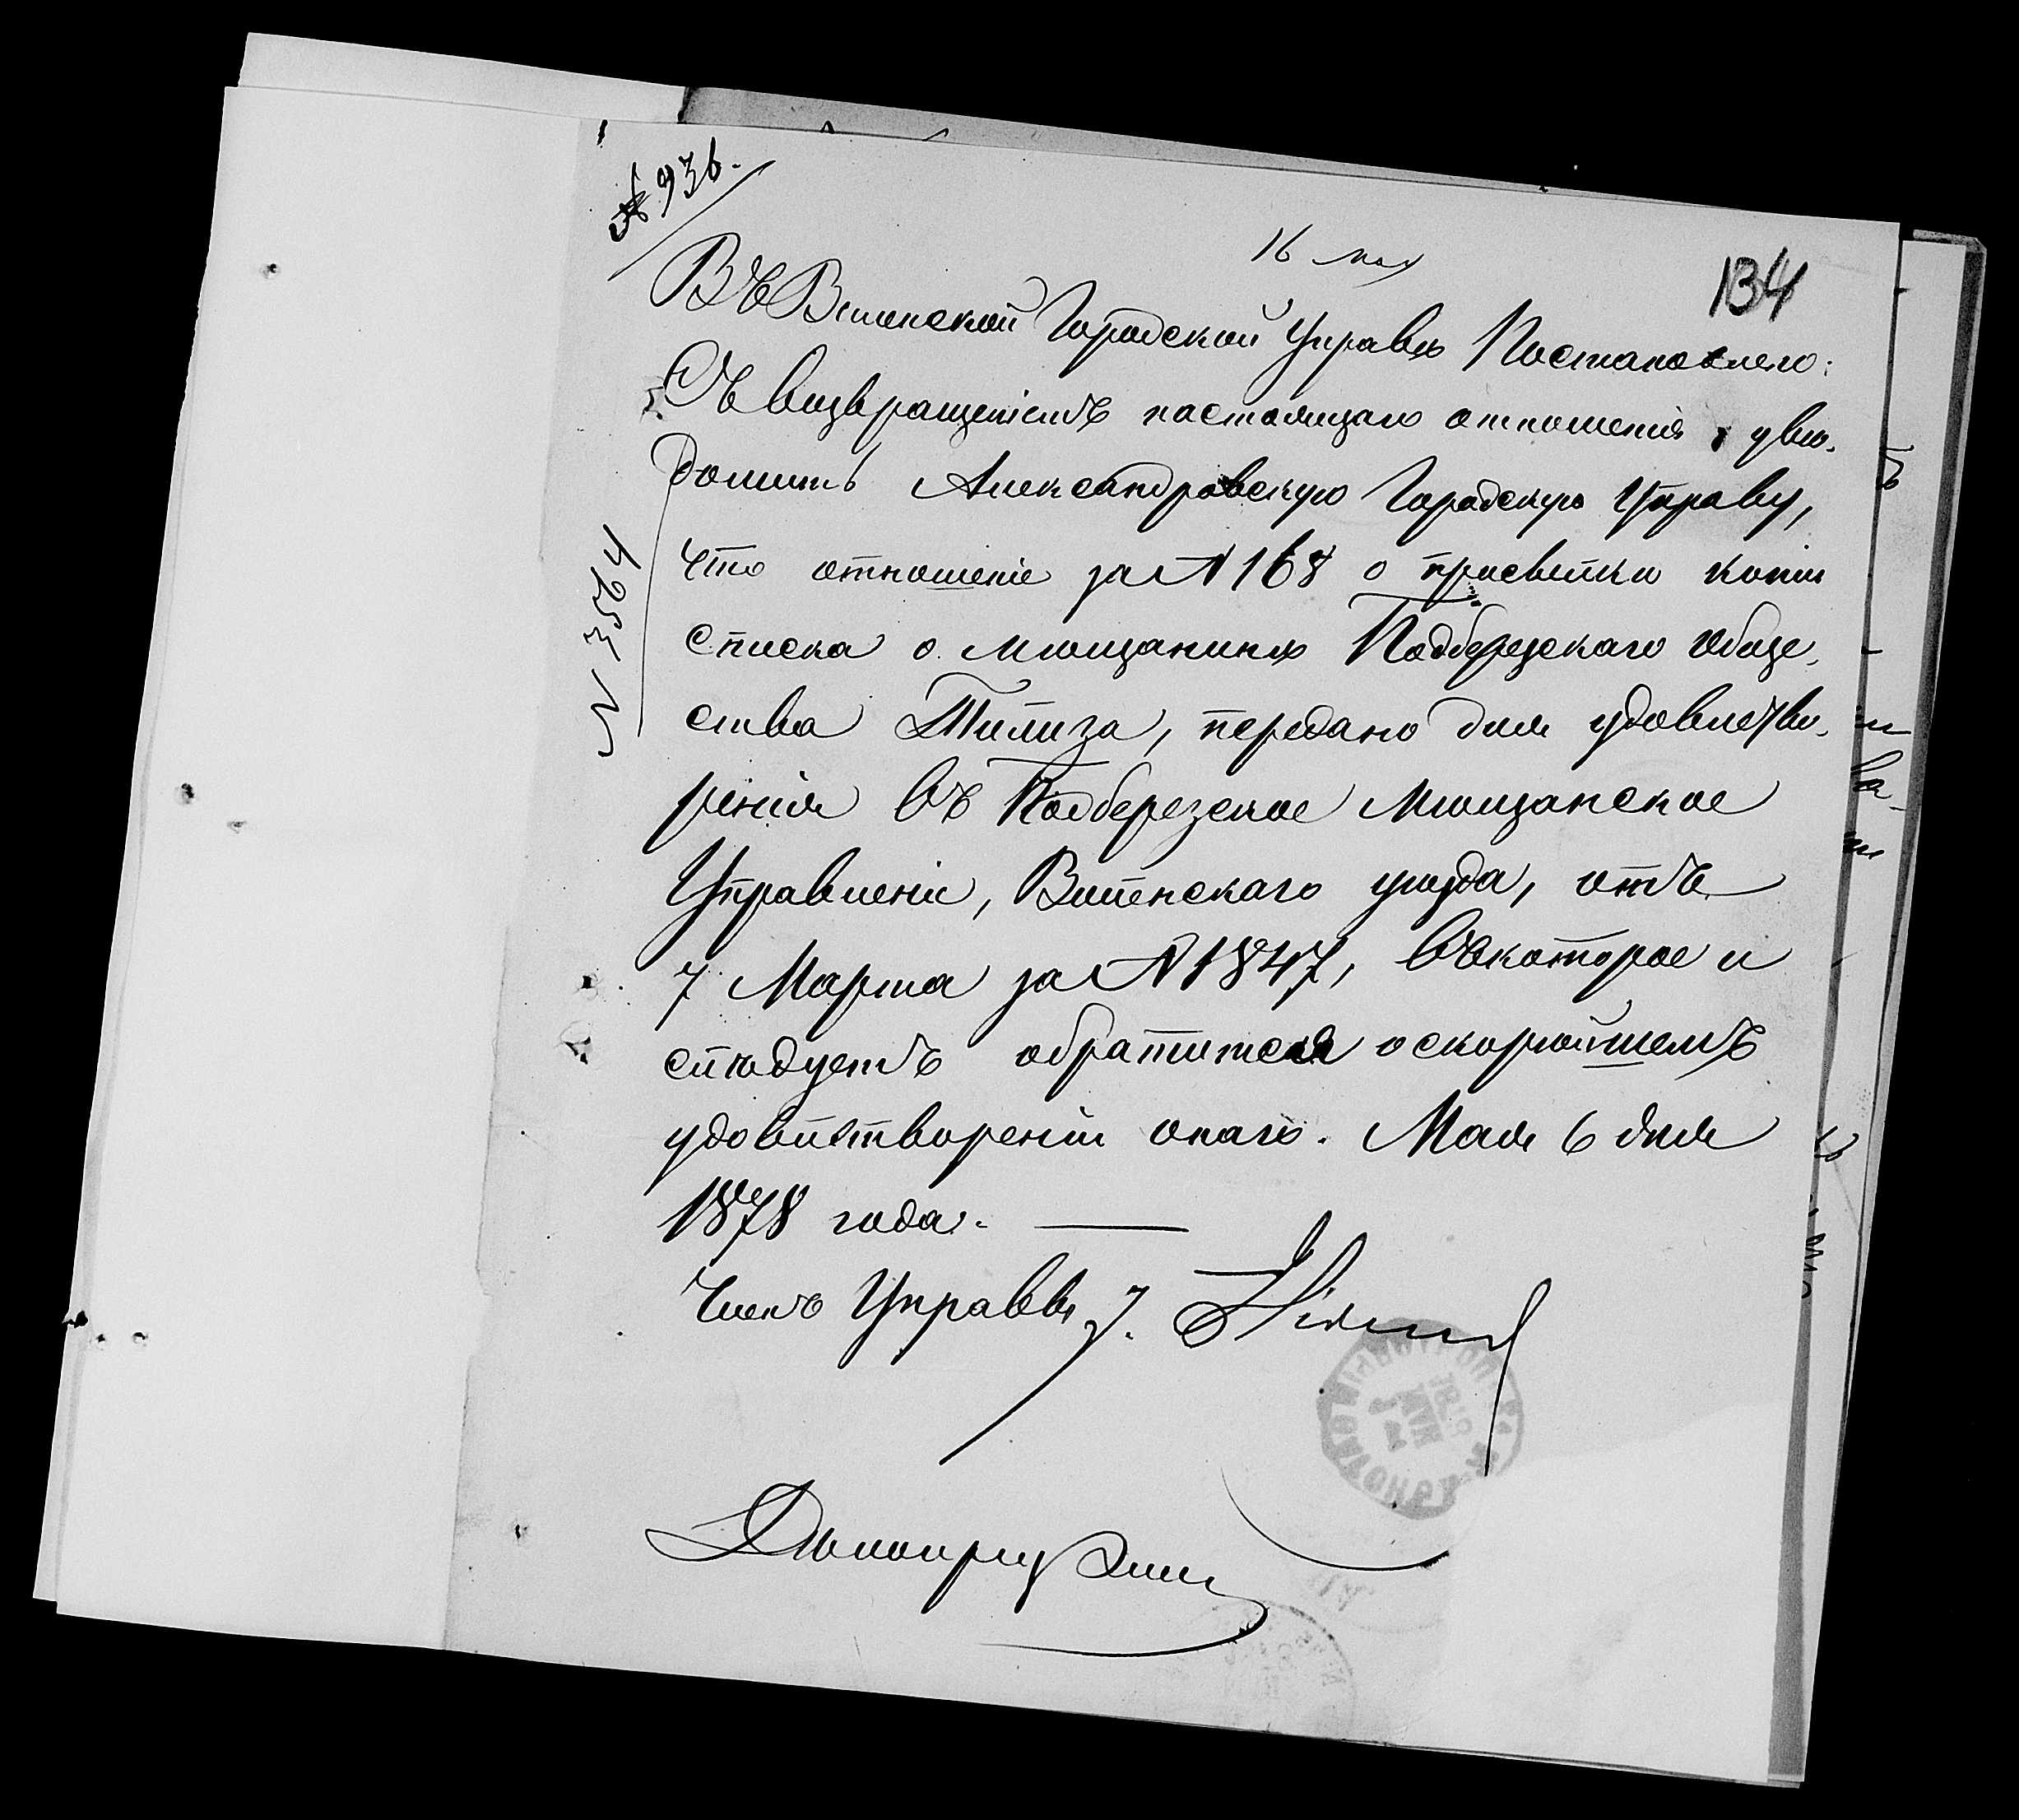 № 936.
16 мая
134
Въ Виленской Городской Управѣ Постановлено:
Съ возвращеніемъ настоящаго отношенія, увѣ-
домить Александровскую Городскую Управу,
что отношеніе за № 168 о присылкѣ копіи
списка о мѣщанинѣ Подберезскаго обще-
ства Шилиза, передано для удовлетво-
ренія въ Подберезское Мѣщанское
Управленіе, Виленскаго уѣзда, отъ
7 Марта за № 1847, въ которое и
слѣдуетъ обратиться о скорѣйшемъ
удовлетвореніи онаго. Мая 6 дня
1878 года.
Членъ Управы
Дѣлопроизв
№ 3564